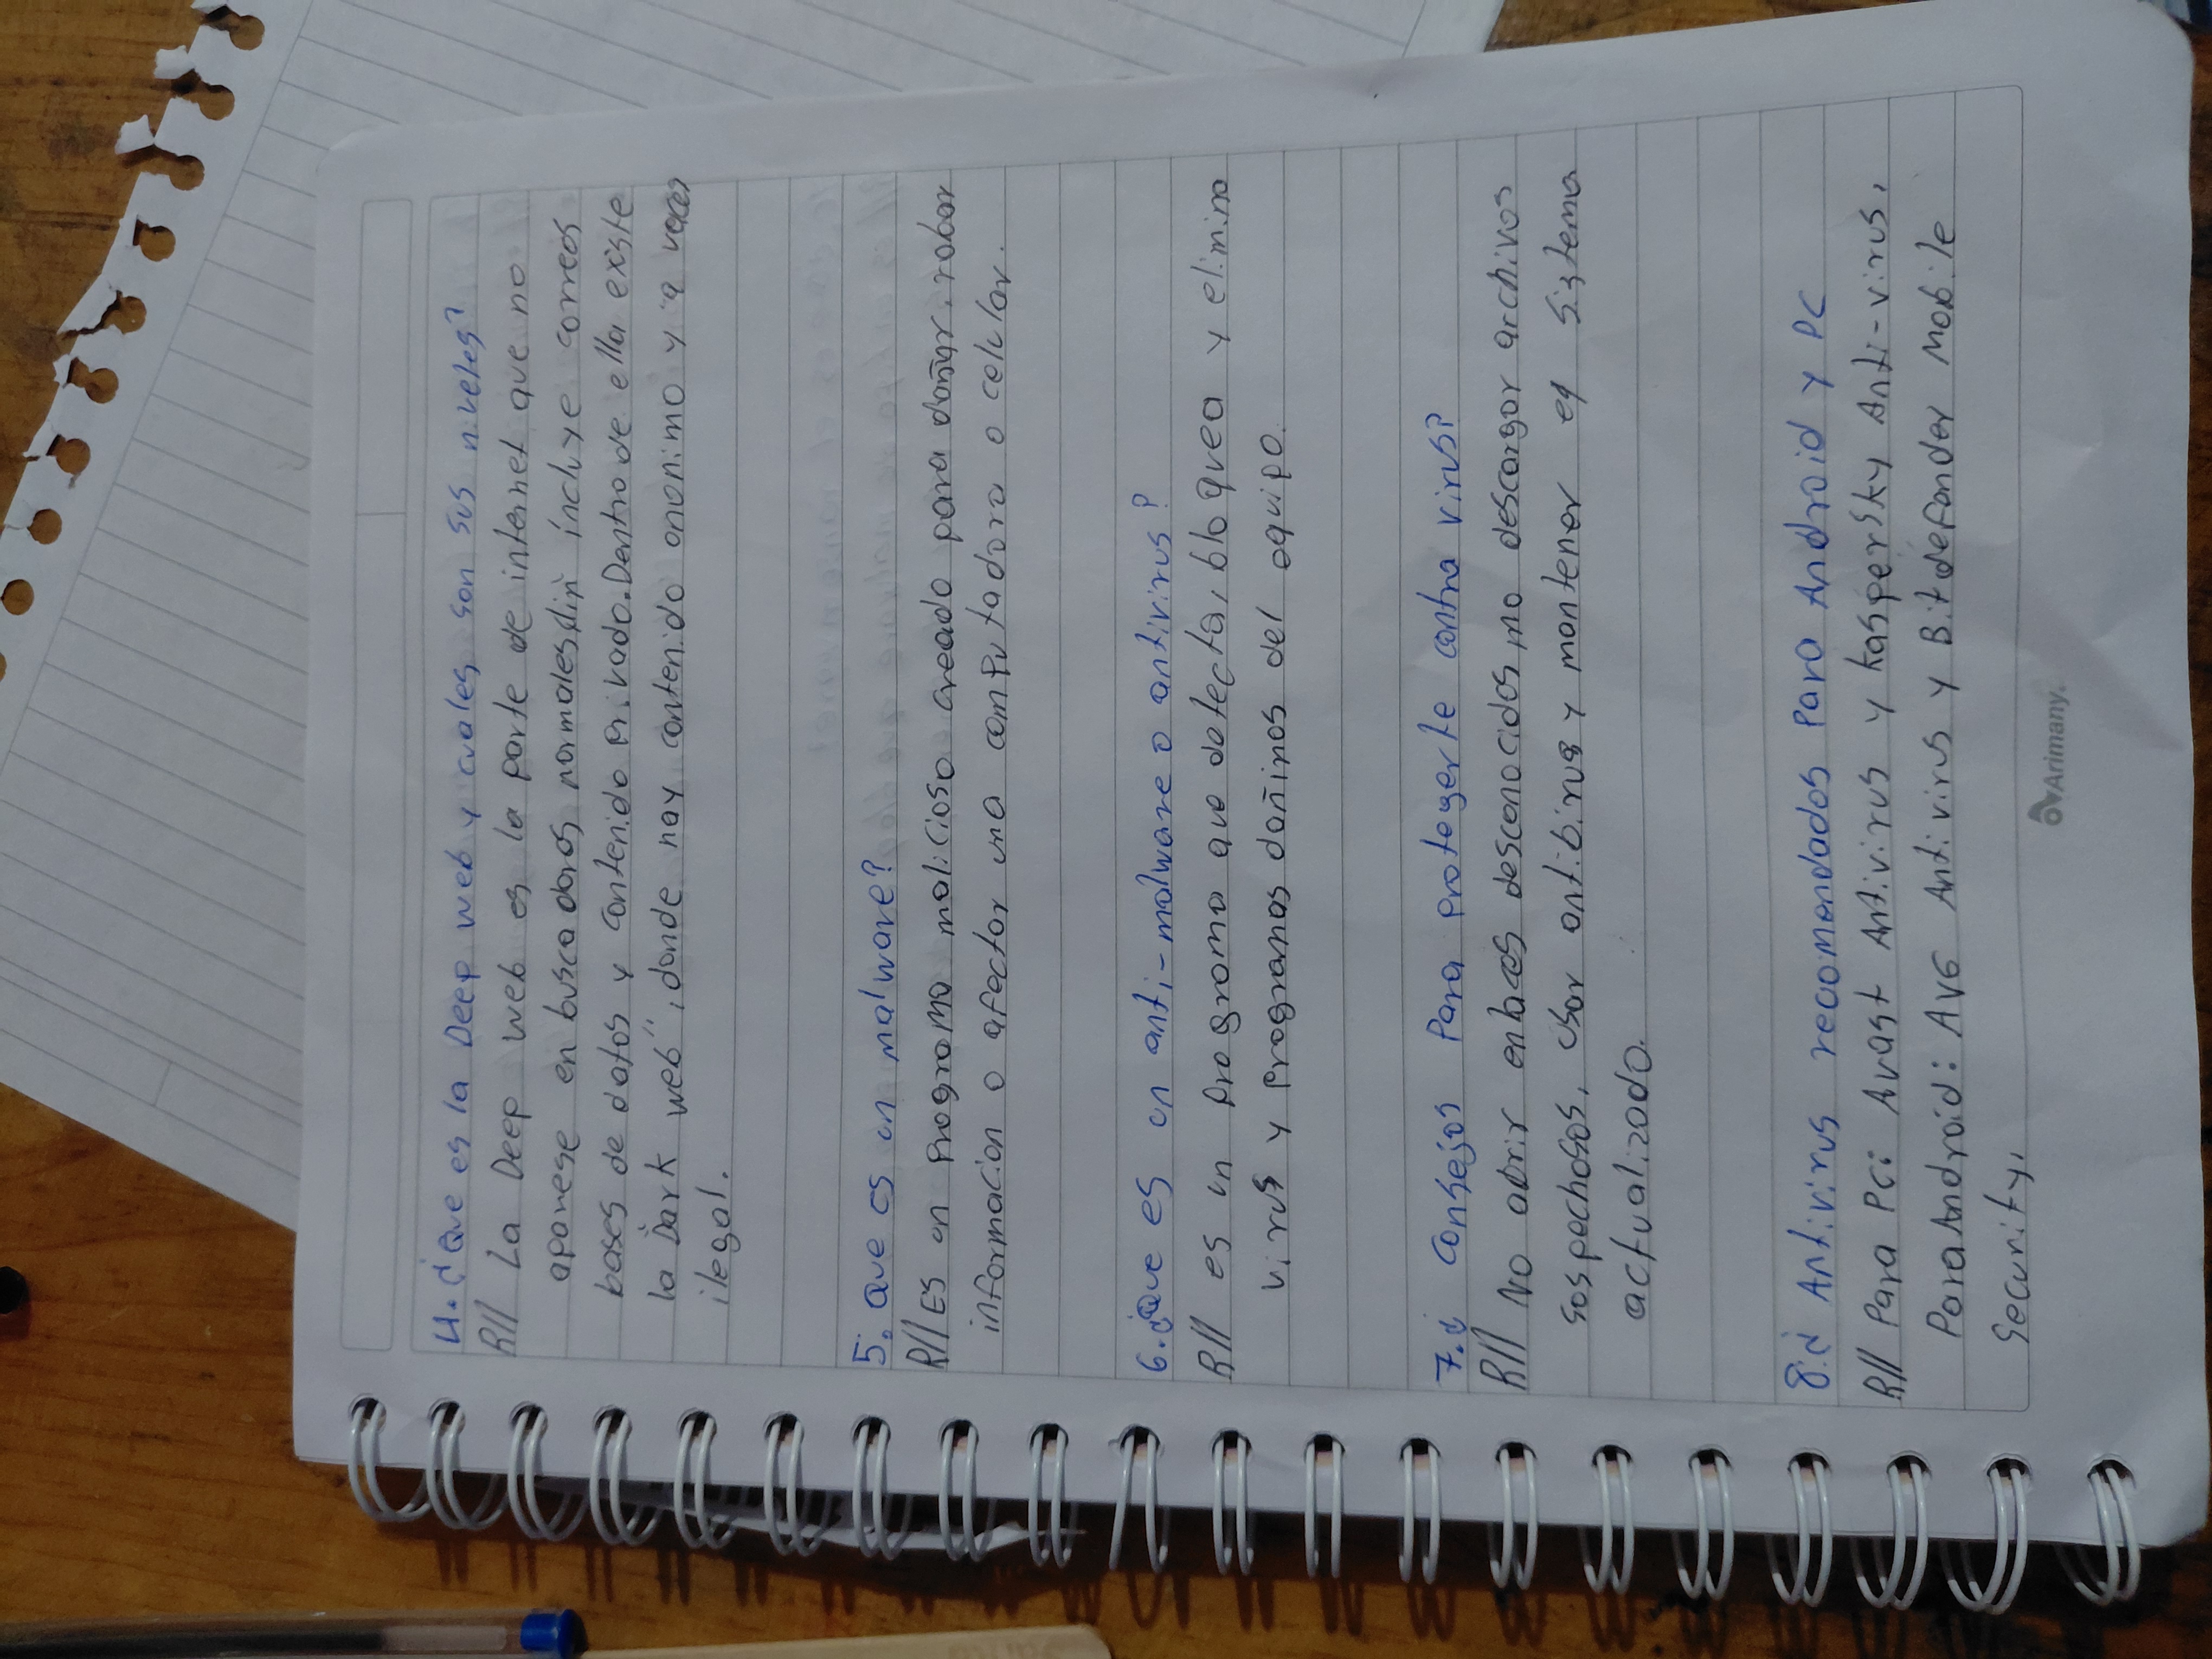 4. ¿Que es la Deep web y cuales son sus niveles?
R// La Deep web es la parte de internet que no
aparese en buscadores normales, incluye correos
bases de datos y contenido privado. Dentro de ella existe
la Dark web", donde hay contenido anonimo y a veces
ilegal.
5. Que es un malware?
R// Es un programa malicioso creado para dañar, robar
informacion o afectar una computadora o celular.
6. ¿Que es un anti-malware o antivirus?
R// es un programa que detecta, bloquea y elimina
virus y programas dañinos del equipo.
7. ¿ Consejos Para protegerte contra virus?
R// No abrir enlaces desconocidos, no descargar archivos
sospechosos, usar antibirus y mantener el sistema
actualizado.
8. ¿ Antivirus recomendados Para Android y PC
R// Para Pc: Avast Antivirus y Kaspersky Anti-virus,
Para Android: AVG Antivirus y Bitdefender Mobile
Security,
Arimany.